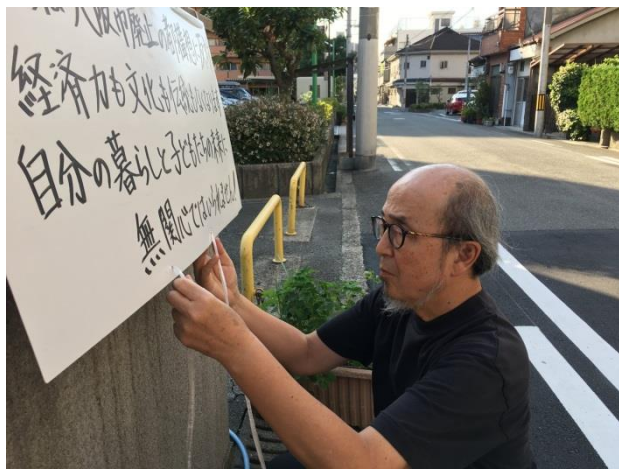 大阪市廃止の
経済力も文化も伝統も
自分の暮らしと子どもたちの未来に
無関心ではいられません!